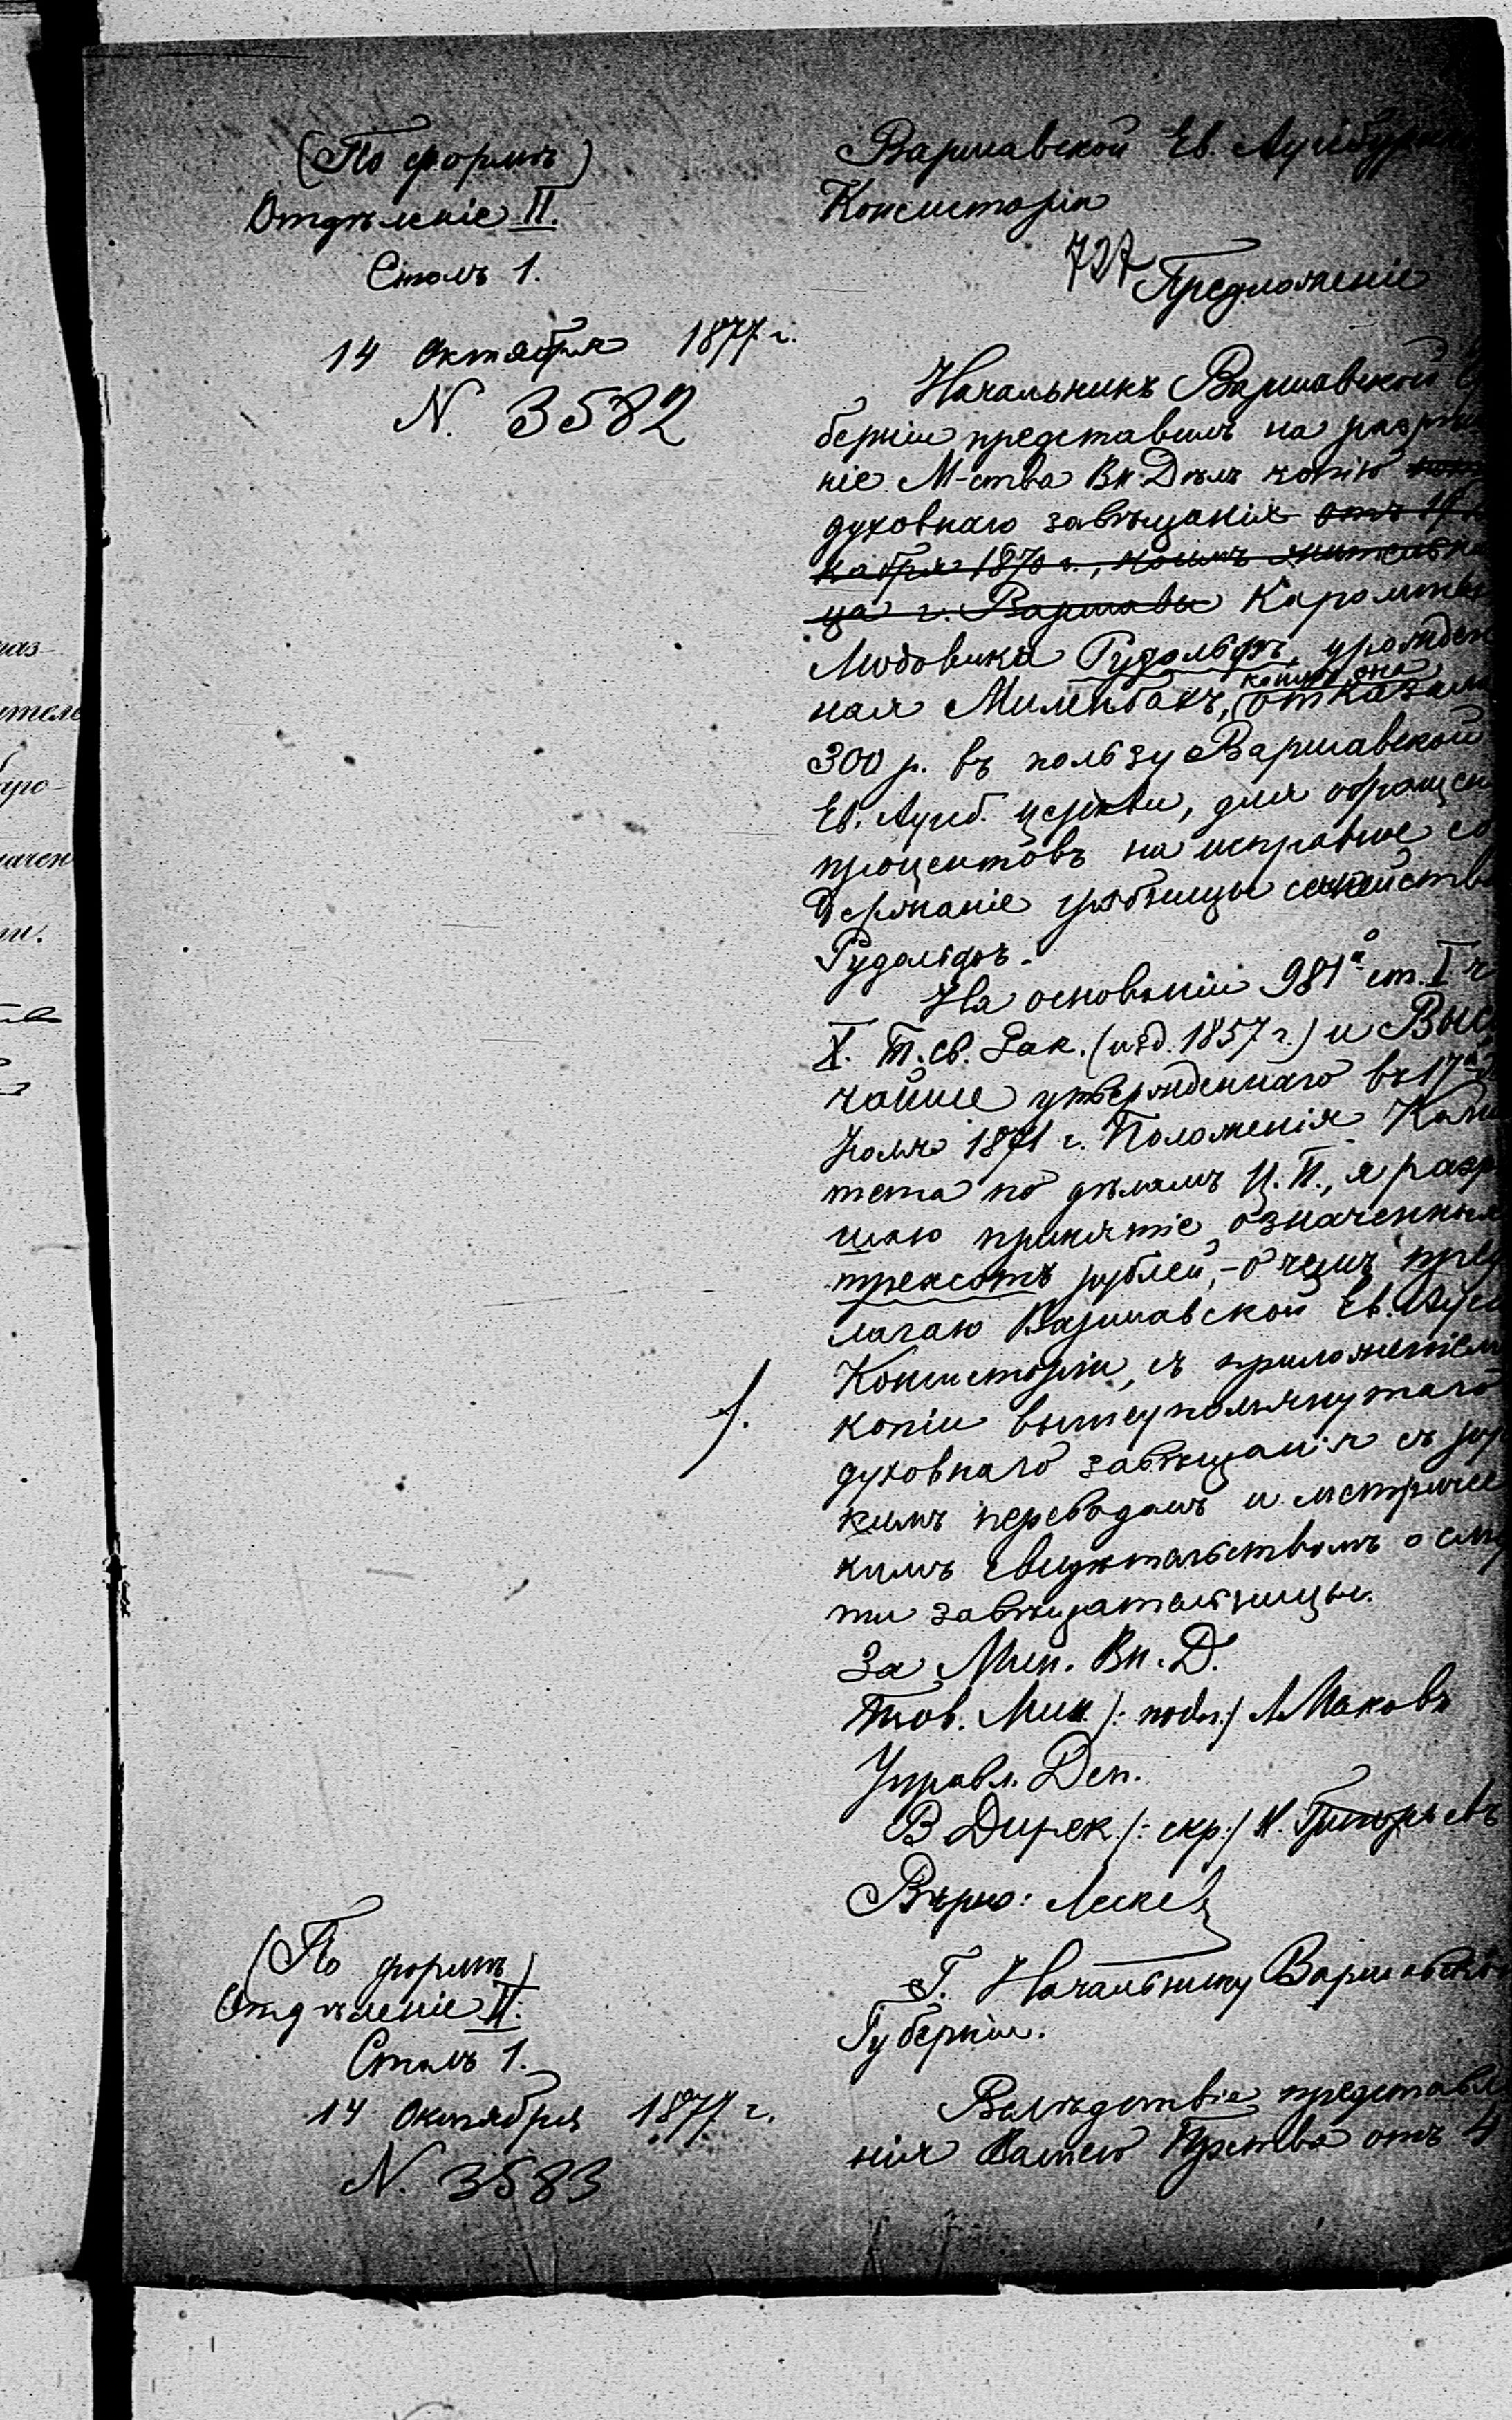 (По формѣ)
Отдѣленіе II.
Столъ 1.
14 Октября 1877 г.
N. 3582
Варшавской Ев. Аугсбургс
Консисторіи
727
Предложеніе
Начальникъ Варшавской Гу
берніи представилъ на разрѣше
ніе М-ства Вн. Дѣлъ копію
духовнаго завѣщанія отъ 19
ября 1870 г., коимъ жительни
ца г. Варшавы Каролины
Людовика Рудольфъ, урожден
коимъ она
ная Миленбахъ, отказала
300 р. въ пользу Варшавской
Ев. Аугсб. церкви, для обращен
процентовъ на исправное со
держаніе гробницы семейства
Рудольфъ.
На основаніи 981 ст. I ч
X. т. св. Зак. (изд. 1857 г.) и Высо
чайше утвержденнаго въ 17 д
Іюля 1871 г. Положенія Коми
тета по дѣламъ Ц. П., я разрѣ
шаю принятіе означенныхъ
трехсотъ рублей, - о чемъ пред
лагаю Варшавской Ев. Аугс
Консисторіи, съ приложеніемъ
копіи вышеупомянутаго
духовнаго завѣщанія съ рус
кимъ переводомъ и метричес
кимъ свидѣтельствомъ о смер
ти завѣщательницы.
За Мин. Вн. Д.
Тов. Мин. /: подп :/ Л Маковъ
Управл. Деп.
В Дирек. /: скр :/ Н. Григорьевъ
Вѣрно:
(По формѣ)
Отдѣленіе II.
Столъ 1.
14 Октября 1877 г.
N. 3583
Г. Начальнику Варшавской
Губерніи.
Вслѣдствіе представле
нія Вашего Прства отъ 4